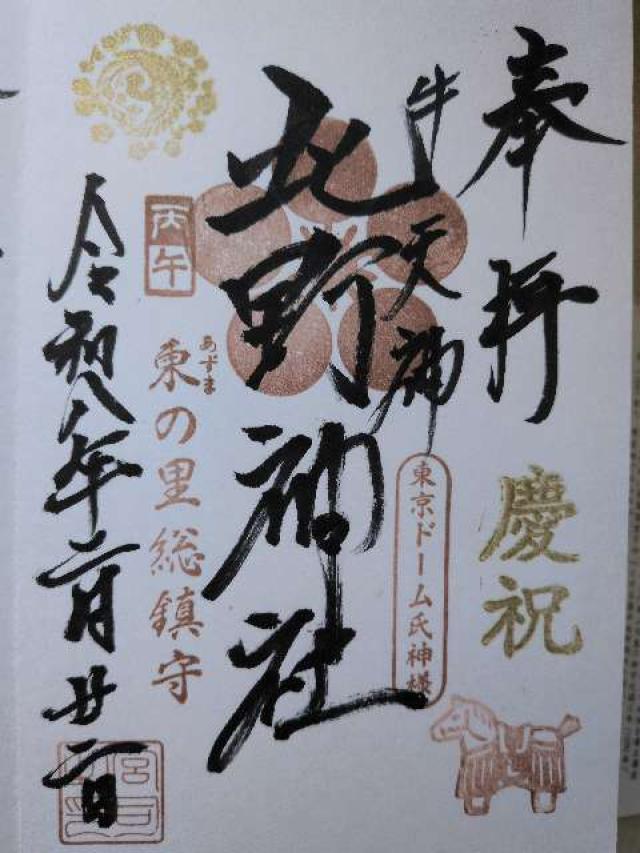 奉拝
慶祝
牛天神
東京ドーム氏神様
北野神社
丙午
あずま
東の里総鎮守
令和八年二月廿二日